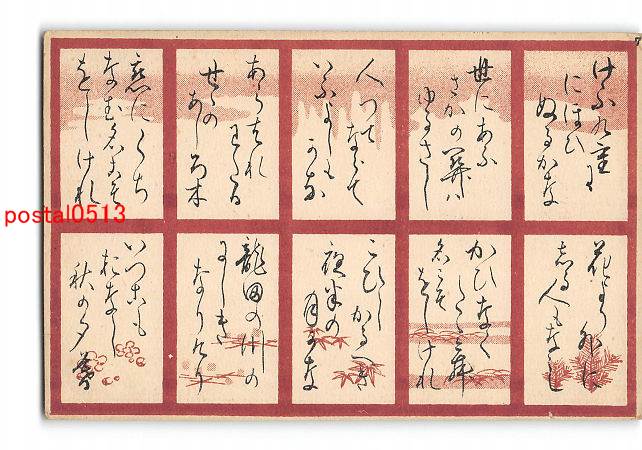 けふ九重に
にほひ
ぬるかな
世にあふ
さかの関ハ
ゆるさし
人つて
ならて
いふよしも
かな
あらはれ
わたる
せゝの
あしろ木
恋にくち
なむ名こそ
をしけれ
花より外に
しる人もなし
かひなく
たゝむ
名こそ
をしけれ
こひし
かるへき
夜半の
月かな
龍田の川の
にしき
なりけり
いつこも
おなし
秋の夕
暮
postal0513